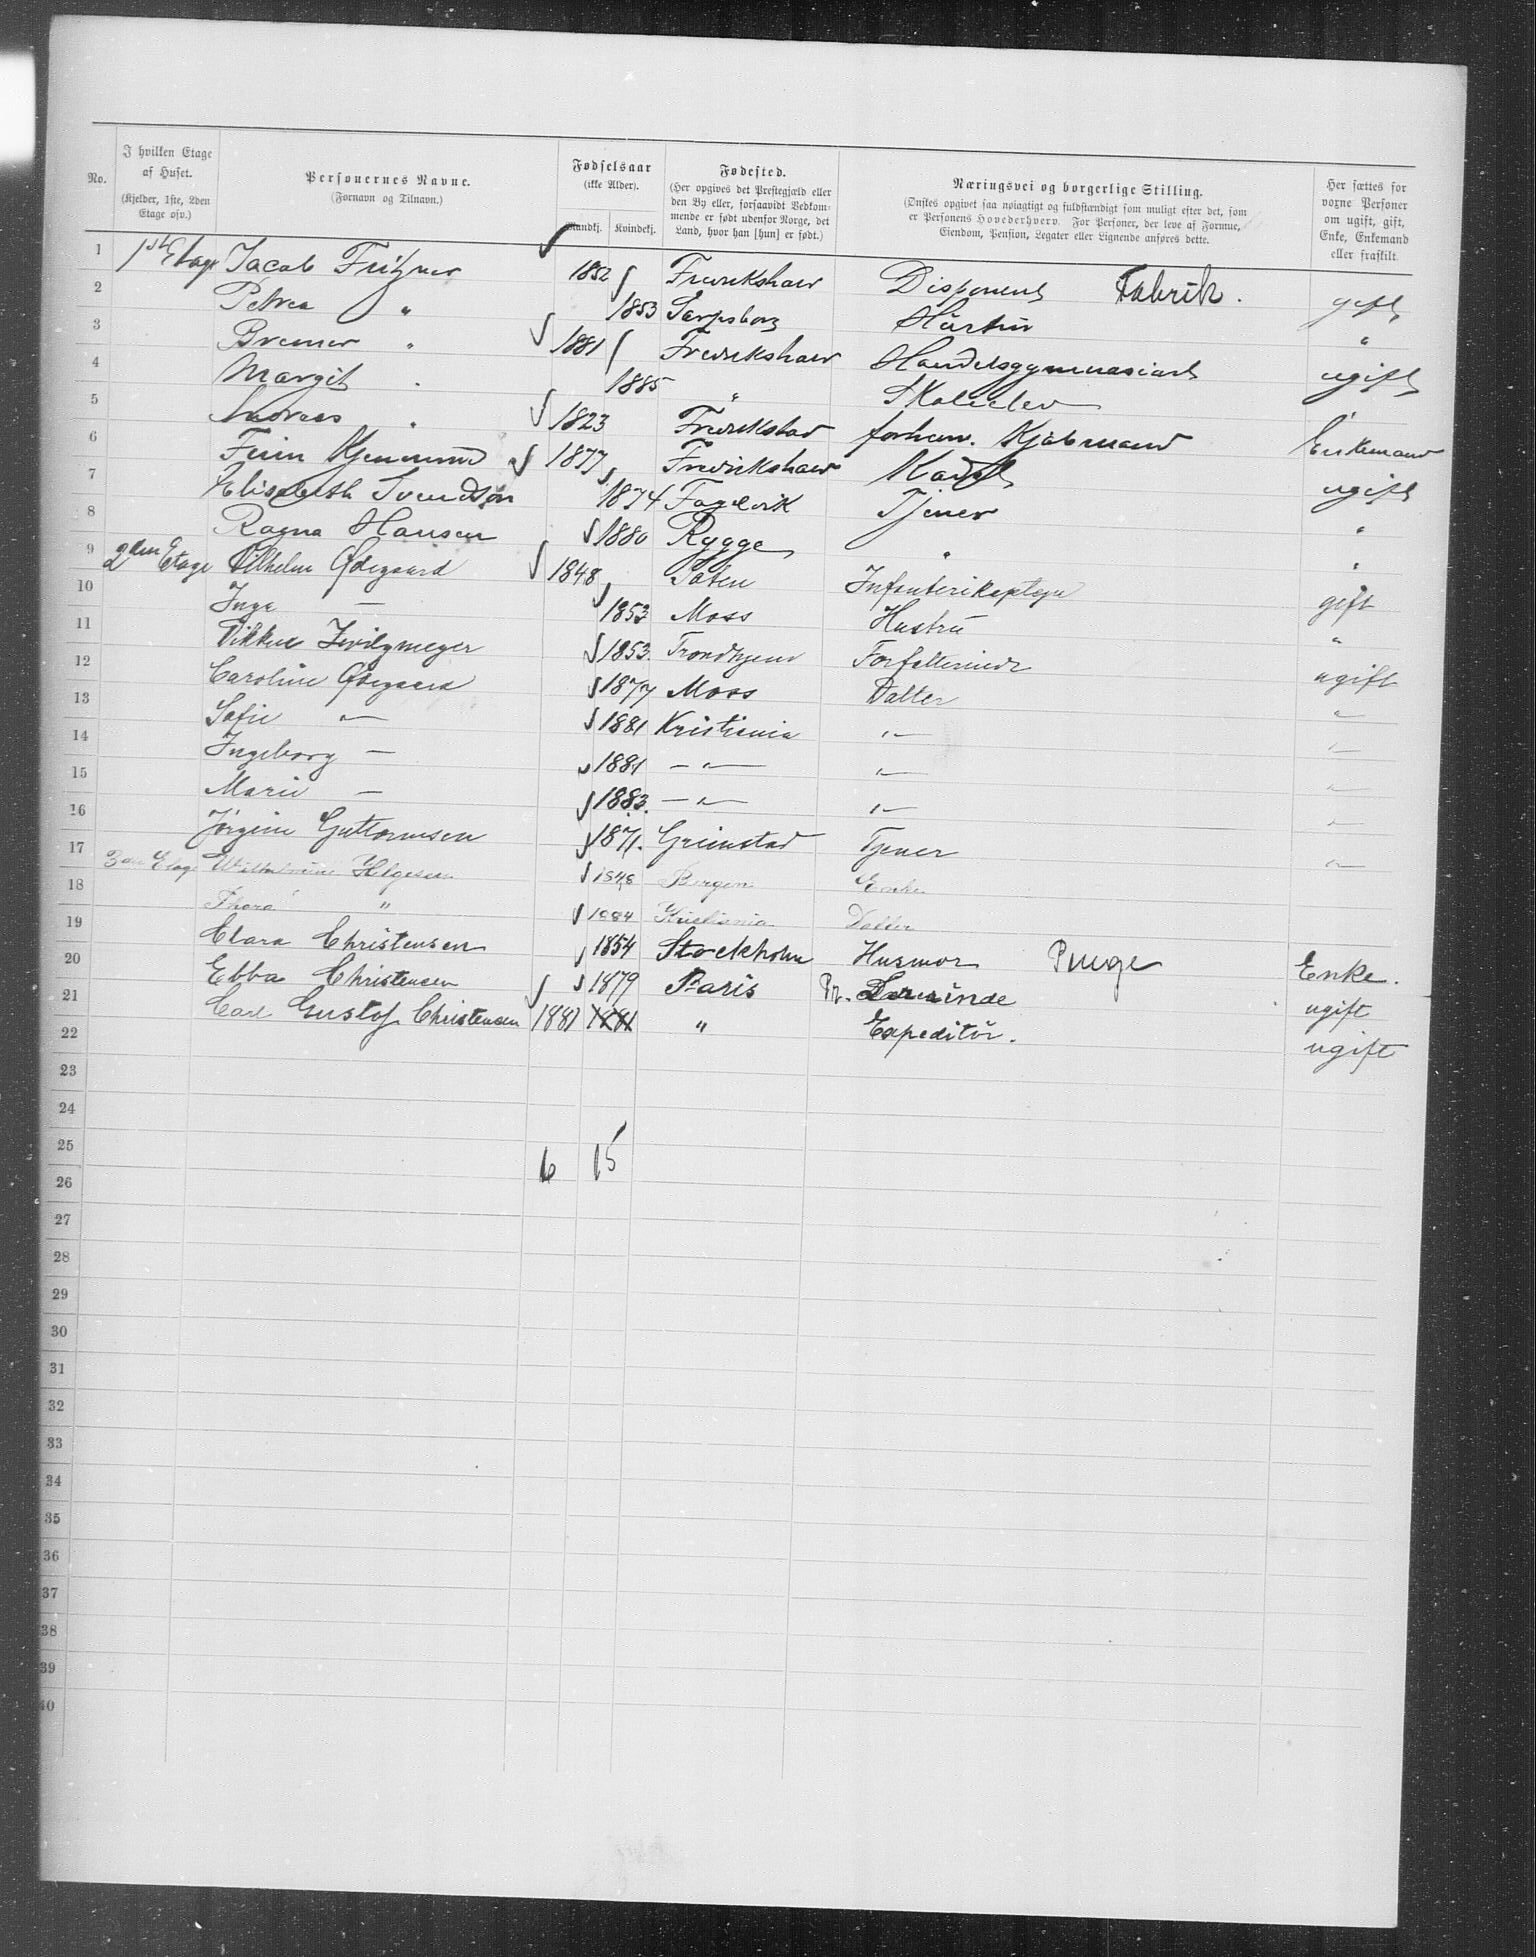 No. | I hvilken Etage af Huset. (Kjelder, 1ste, 2den Etage osv.) | Personernes Navne. (Fornavn og Tilnavn.) | Fødselsaar (ikke Alder). Mandkj. Kvindekj. | Fødested. (Her opgives det Prestegjæld eller den By eller, forsaavidt Vedkommende er født udenfor Norge, det Land, hvor han [hun] er født.) | Næringsvei og borgerlige Stilling. (Ønskes opgivet saa nøiagtigt og fuldstændigt som muligt efter det, som er Personens Hovederhverv. For Personer, der leve af Formue, Eiendom, Pension, Legater eller Lignende anføres dette. | Her sættes for voxne Personer om ugift, gift, Enke, Enkemand eller fraskilt.
1 1ste Etage Jacob Fritzner 1852 Fredrikshald Disponent Fabrik. gift
2 Petrea " 1853 Sarpsborg Hustru "
3 Bremer " 1881 Fredrikshald Handelsgymnasiast ugift
4 Margit " 1885 " Skoleelev "
5 Andreas " 1823 Fredrikstad forhen. Kjøbmand Enkemand
6 Finn 1877 Fredrikshald Kadet ugift
7 Elisabeth Svendsen 1874 Fagelvik Tjener "
8 Ragna Hansen 1880 Rygge " "
9 2den Etage Vilhelm Ødegaard 1848 Infanterikaptejn gift
10 Inga — 1853 Moss Hustru "
11 Dikken Zwilgmeyer 1853. Trondhjem Forfatterinde ugift
12 Caroline Ødegaard 1877 Moss Datter "
13 Sofie — 1881 Kristiania " "
14 Ingeborg — 1881 — " — " "
15 Marie — 1883. — " — " "
16 Jørgine Guttormsen 1871. Grimstad Tjener "
17 3die Etage Wilhelmine Helgesen 1848 Bergen Enke
18 Thora " 1884 Kristiania Datter
19 Clara Christensen 1854 Stockholm Husmor Enke.
20 Ebba Christensen 1879 Paris Pr. Lærerinde ugift
21 Carl Gustof Christensen 1881 1881 " Expeditør. ugift
22
23
24
25
6 15
26
27
28
29
30
31
32
33
34
35
36
37
38
39
40